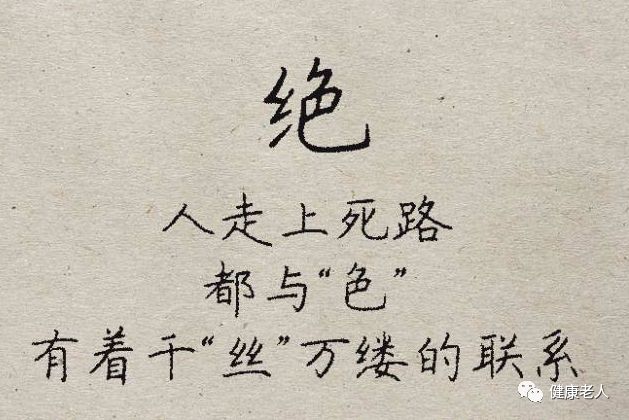 绝
人走上死路
都与“色”
有着千“丝”万缕的联系
健康老人